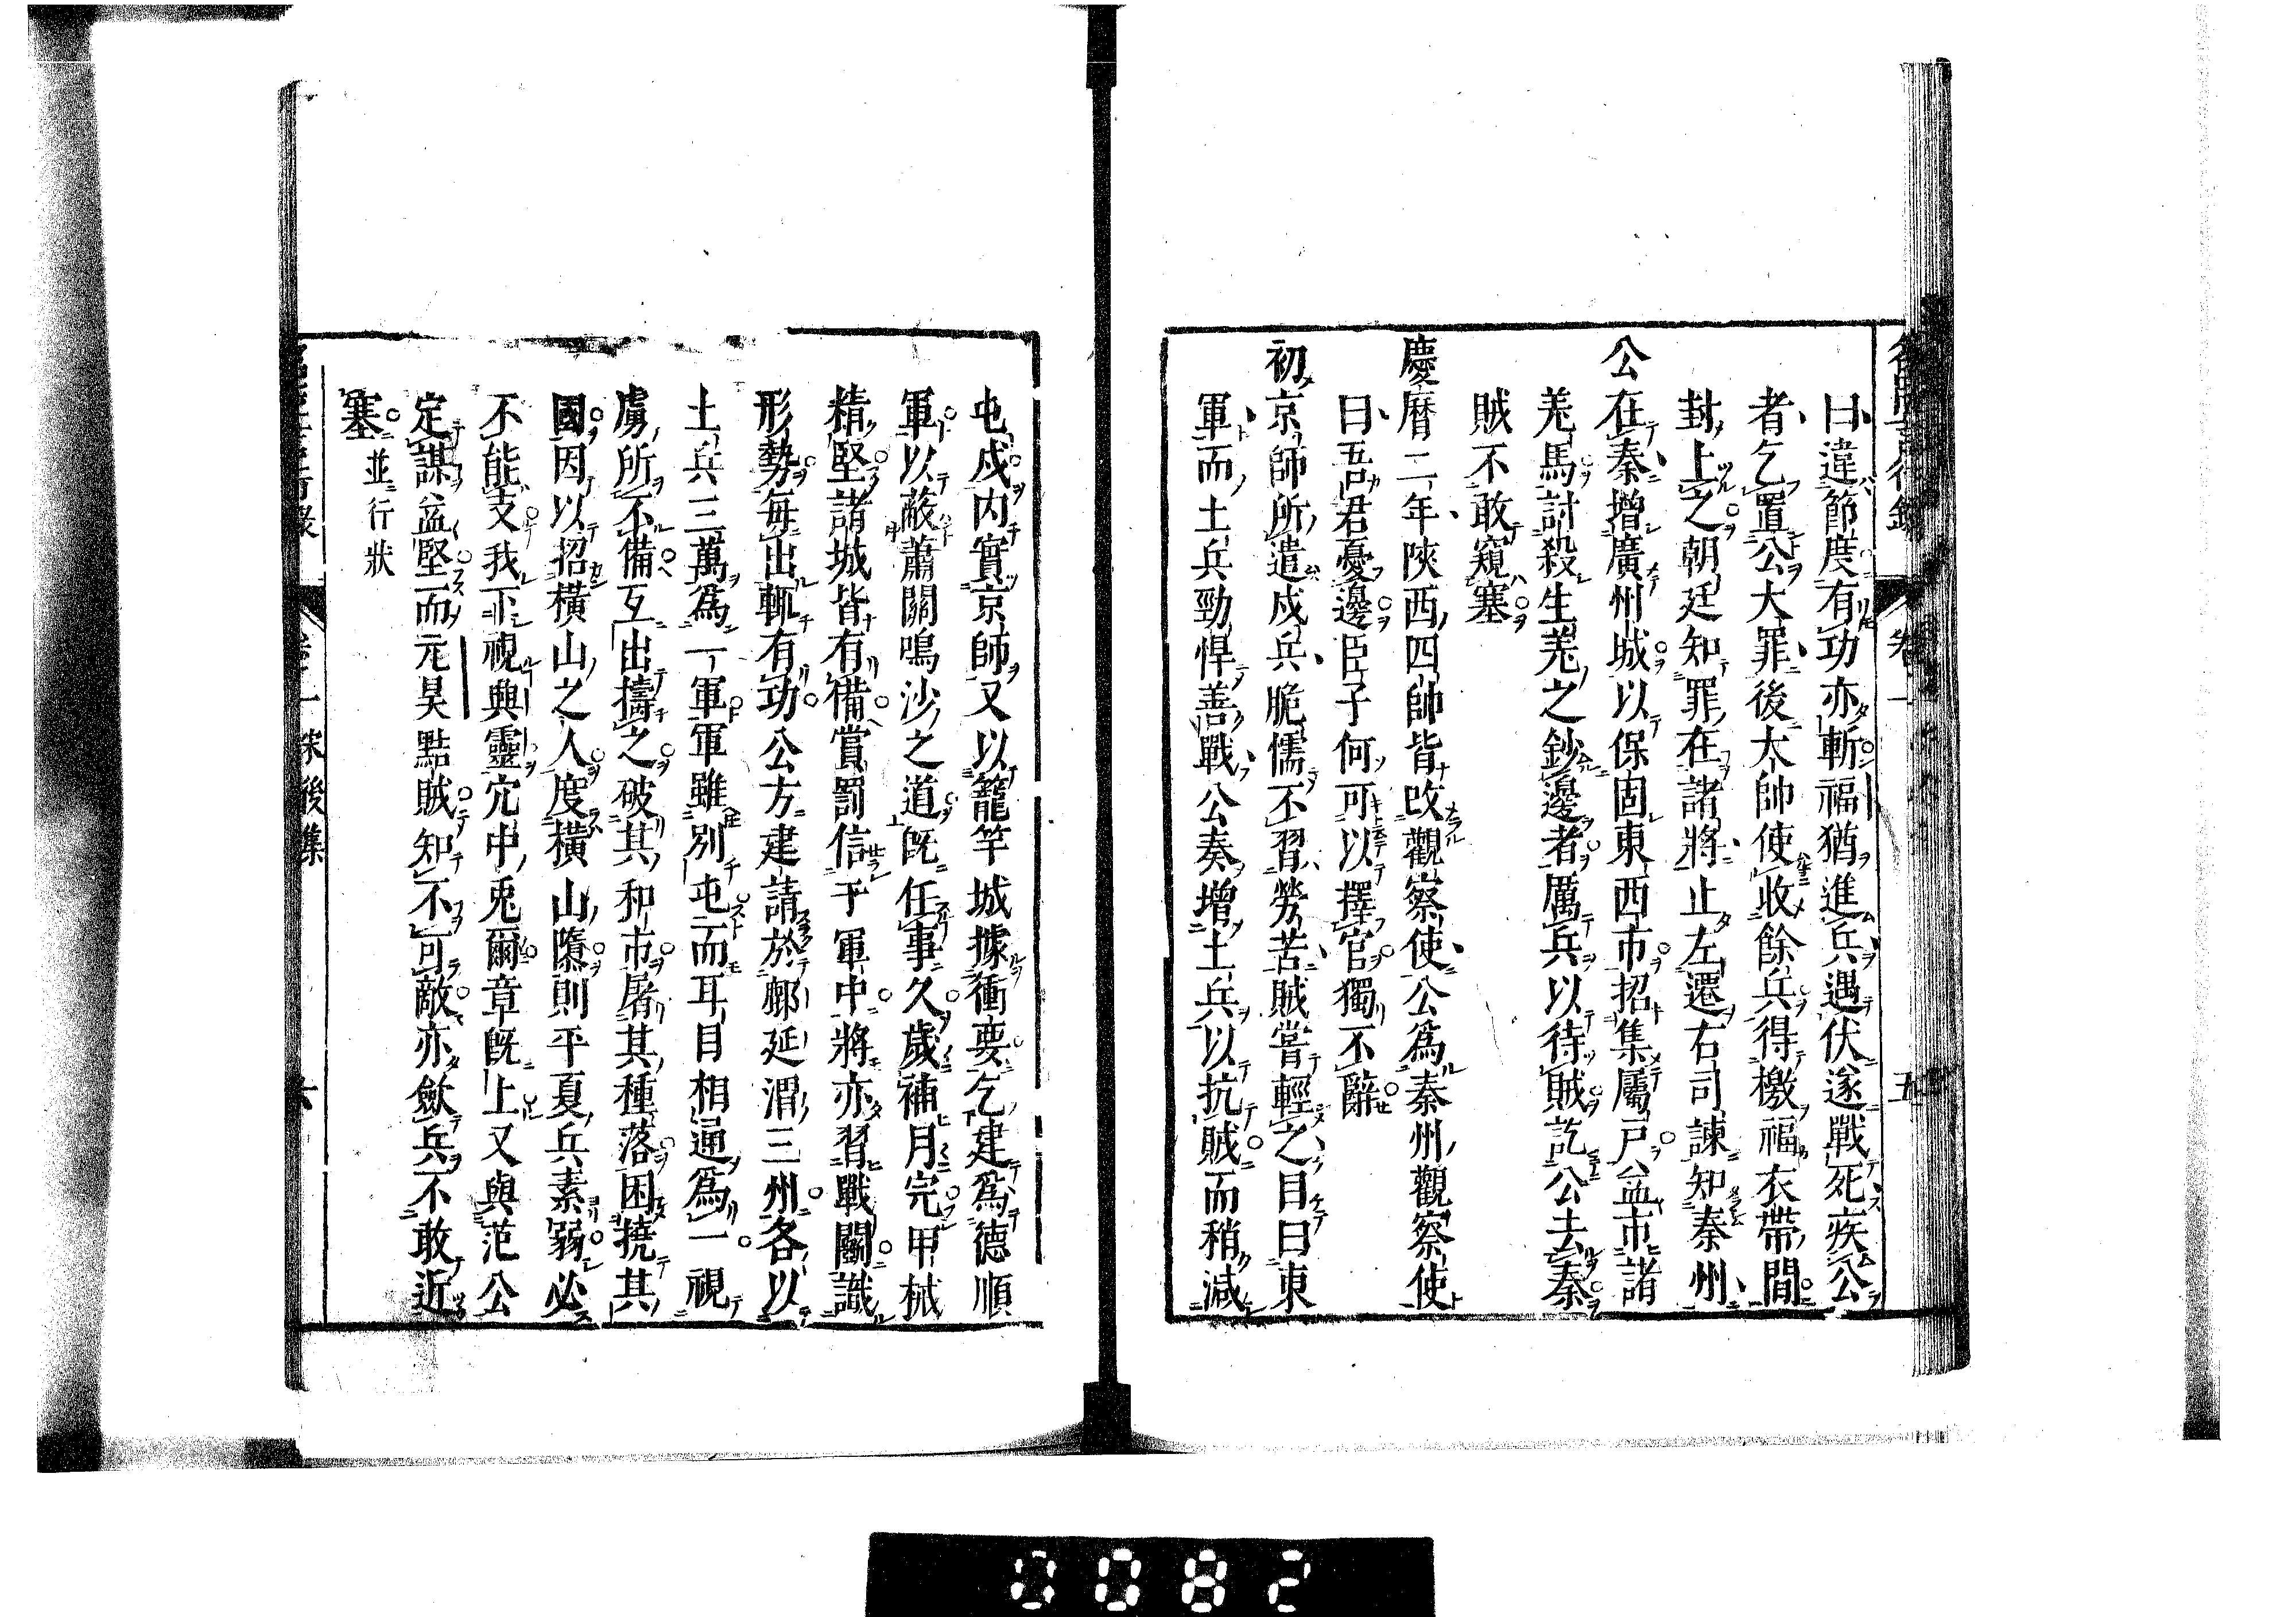 曰違節度有功亦斬福猶進兵遇伏遂戰死疾公
者乞置公大罪後大帥使收餘兵得檄福衣帶間
封上之朝廷知罪在諸將止左遷右司諫知秦州
公在秦增廣州城以保固東西市招集屬戸益市諸
羌馬討殺生羌之鈔邊者厲兵以待賊訖公去秦
賊不敢窺塞
慶曆二年陝西四帥皆改觀察使公爲秦州觀察使
曰吾君憂邊臣子何可以擇官獨不辭
初京師所遣戍兵脆儒不習勞苦賊嘗輕之目曰東
軍而土兵勁悍善戰公奏增土兵以抗賊而稍減
屯戍内實京師又以籠竿城據衝要乞建爲德順
軍以蔽蕭關鳴沙之道既任事久歲補月完甲械
精堅諸城皆有備賞罰信于軍中將亦習戰鬭識
形勢毎出輒有功公方建請於鄜延渭三州各以
土兵三萬爲一軍軍雖別屯而耳目相通爲一視
虜所不備互出擣之破其和市屠其種落困撓其
國因以招橫山之人度橫山隳則平夏兵素弱必
不能支我下視興靈穴中兎爾章既上又與范公
定謀益堅而元昊黠賊知不可敵亦斂兵不敢近
塞並行狀
五
0082